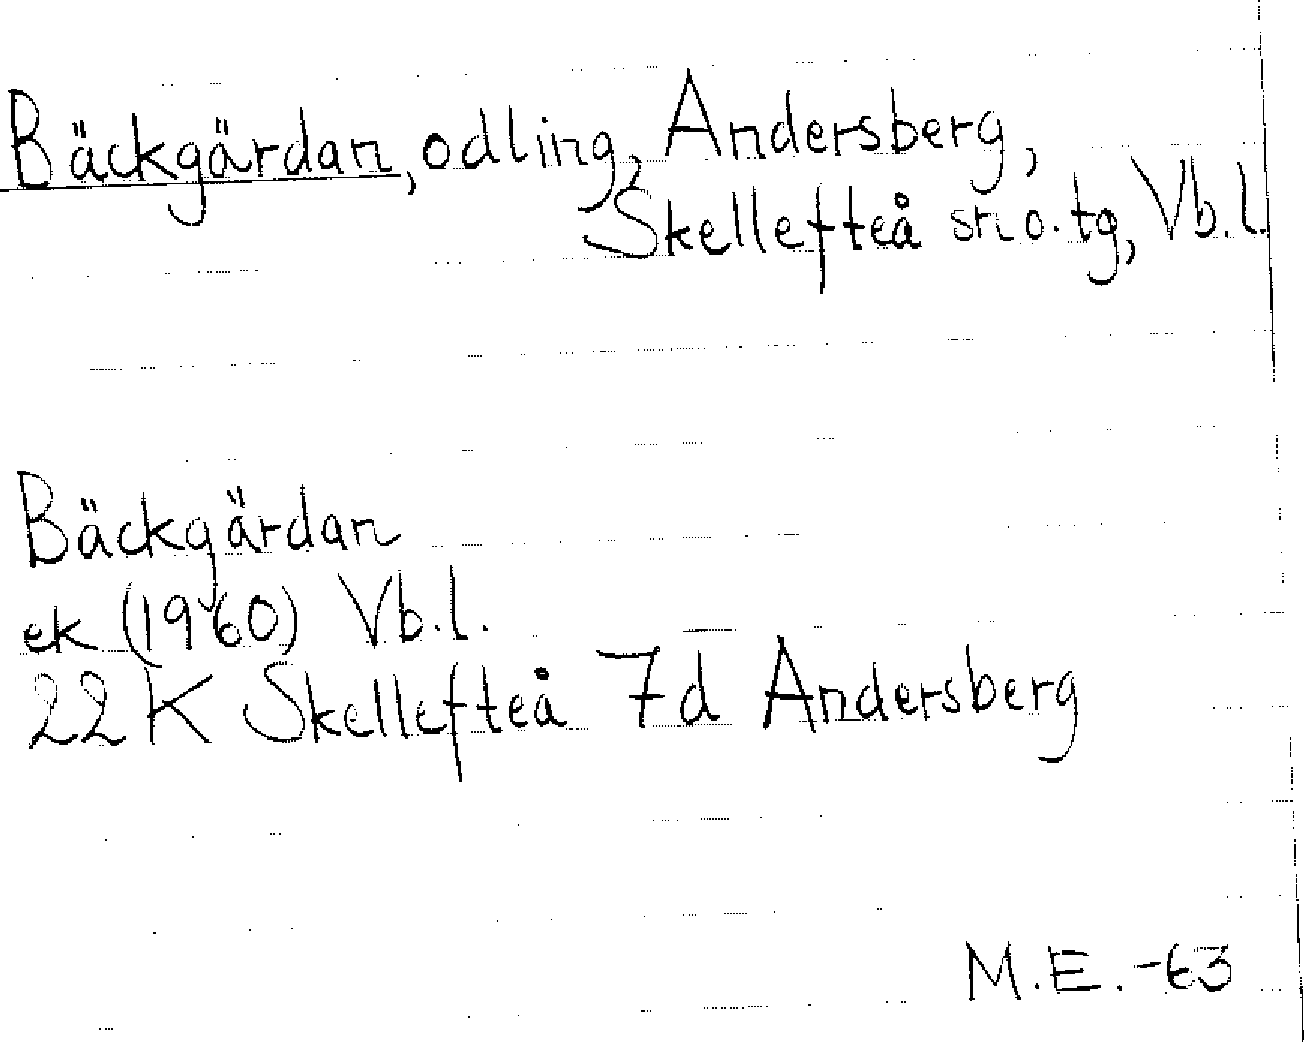 Bäckgärdan, odling, Andersberg,
Skellefteå sn o. tg, Vb.l.
Bäckgärdan
ek (1960) Vb.l.
22 K Skellefteå 7d Andersberg
M.E.-63